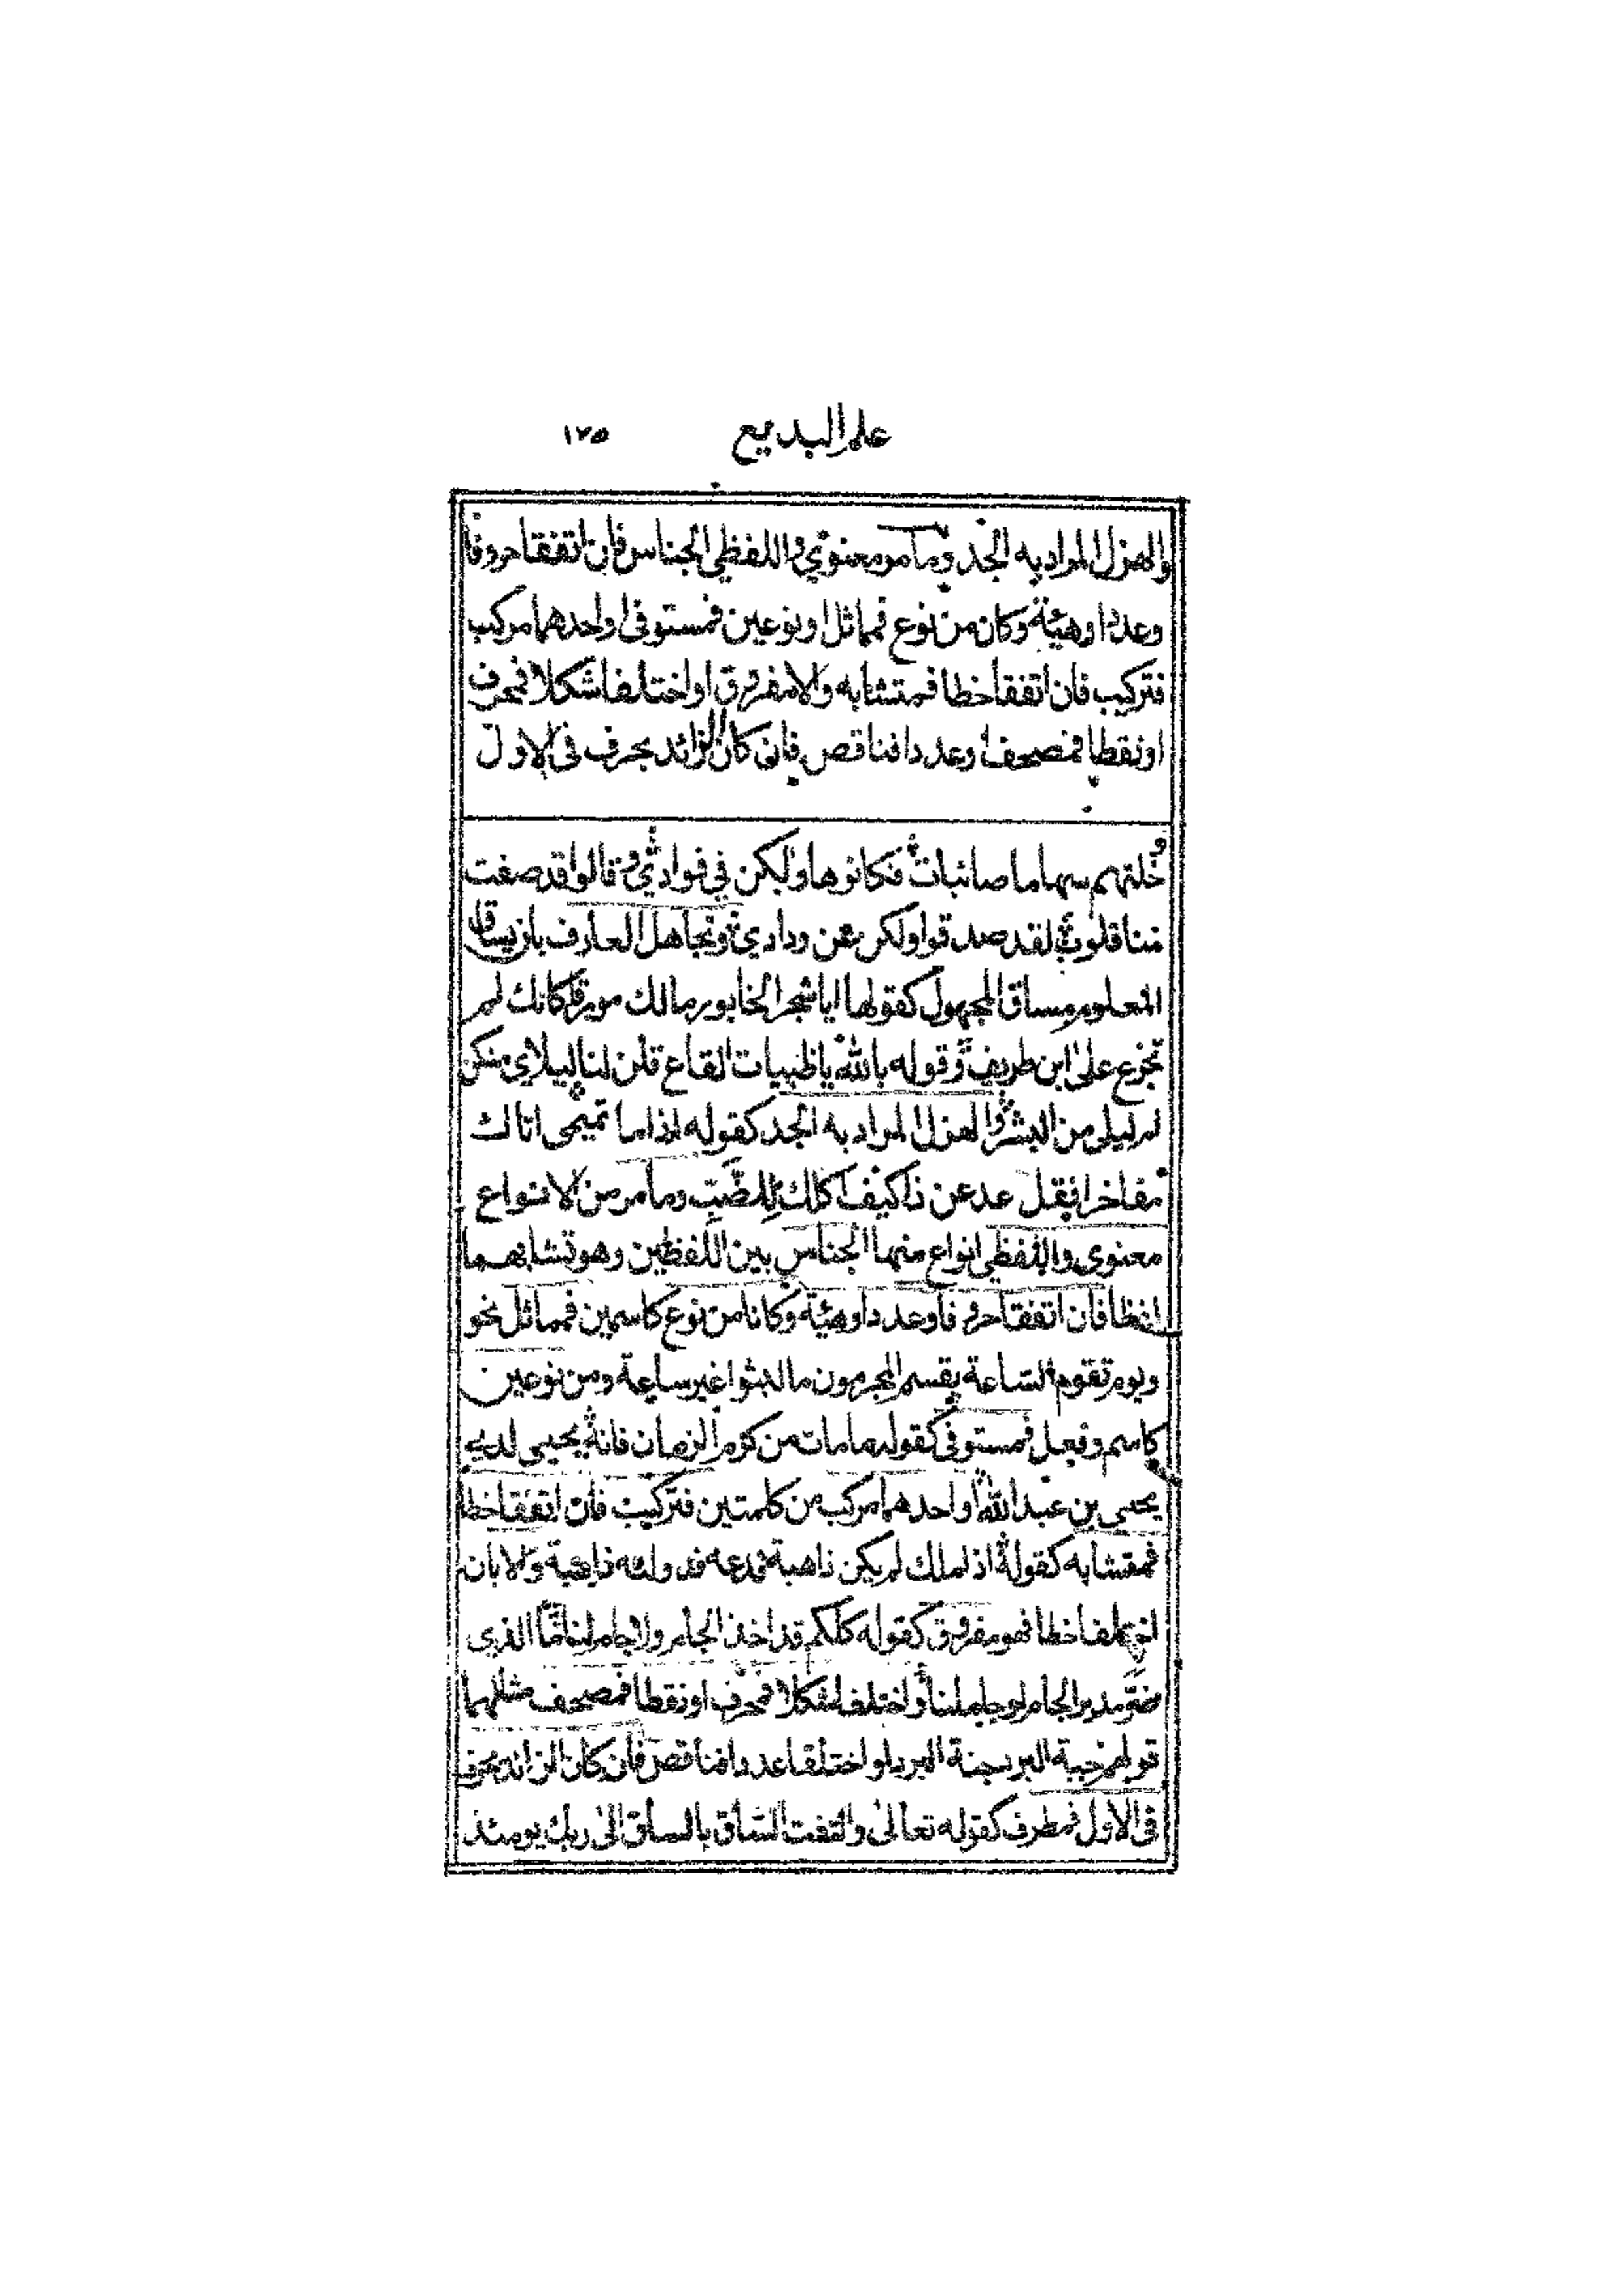 علم البديع ١٧٥
والهزل المراد به الجد وما مر معنوي واللفظي الجناس فان اتفقا حروفا
وعددا وهيئة وكان من نوع فمماثل او نوعين فمستوفى او احدهما مركب
فتركيب فان اتفقا خطا فمتشابه والا مفروق او اختلفا شكلا فمحرف
او نقطا فمصحف او عددا فناقص فان كان الزائد بحرف فى الاول
وخلتهم سهاما صائبات فكانوها ولكن في فوادي وقالوا قد صفت
منا قلوب لقد صدقوا ولكن عن ودادي وتجاهل العارف بان يساق
المعلوم مساق المجهول كقولها ايا شجر الخابور مالك مورقا كانك لم
تجزع على ابن طريف وقوله بالله يا ظبيات القاع قلن لنا ليلاي منكن
ام ليلى من البشر والهزل المراد به الجد كقوله اذا ما تميمى اتاك
مفاخرا فقل عد عن ذا كيف اكلك للضب وما مر من الانواع
معنوى واللفظي انواع منها الجناس بين اللفظين وهو تشابههما
لفظا فان اتفقا حروفا وعددا وهيئة وكانا من نوع كاسمين فمماثل نحو
ويوم تقوم الساعة يقسم المجرمون ما لبثوا غير ساعة ومن نوعين
كاسم وفعل فمستوفى كقوله ما مات من كرم الزمان فانه يحيى لدى
يحيى بن عبد الله او احدهما مركب من كلمتين فتركيب فان اتفقا خطا
فمتشابه كقوله اذا ملك لم يكن ذاهبة فدعه فدولته ذاهبة والا بان
اختلفا خطا فهو مفروق كقوله كلكم قد اخذ الجام ولا جام لنا ما الذى
ضر مدير الجام لو جاملنا او اختلفا شكلا فمحرف او نقطا فمصحف مثلهما
قولهم جبة البرد جنة البرد او اختلفا عددا فناقص فان كان الزائد بحرف
فى الاول فمطرف كقوله تعالى والتفت الساق بالساق الى ربك يومئذ